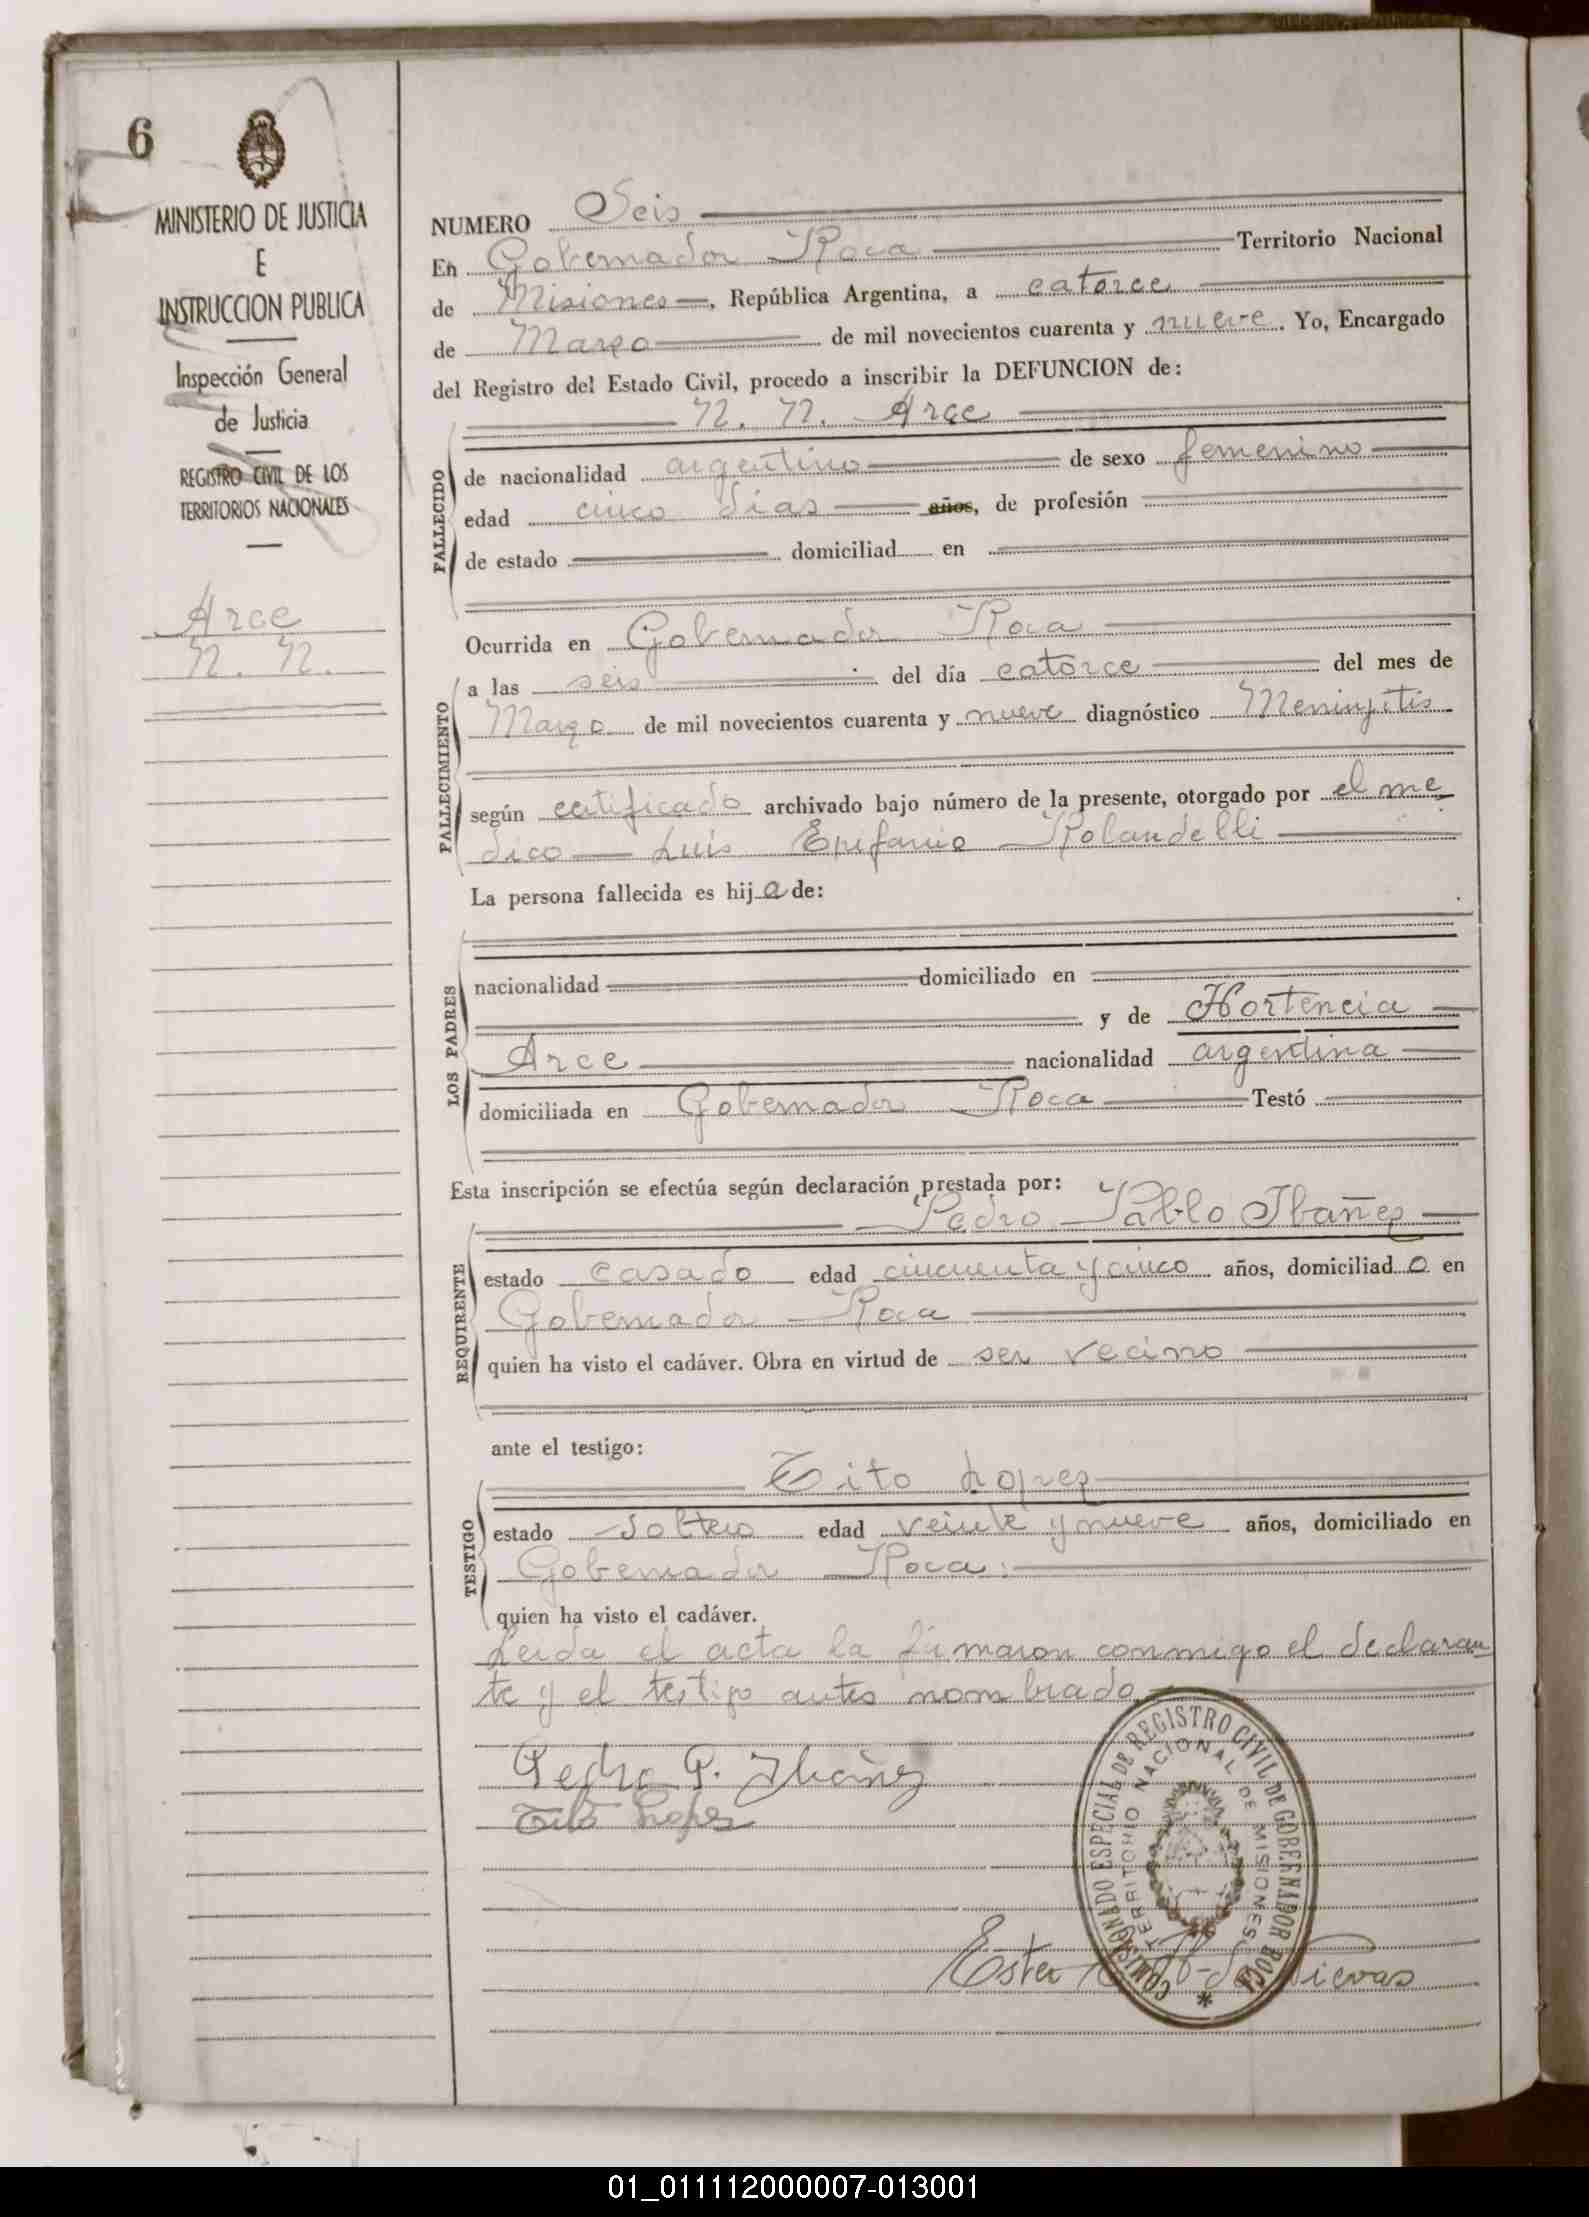 6
MINISTERIO DE JUSTICIA
E
INSTRUCCION PUBLICA
Inspección General
de Justicia
REGISTRO CIVIL DE LOS
TERRITORIOS NACIONALES
Arce
N. N.
NUMERO Seis
En Gobernador Roca Territorio Nacional
de Misiones, República Argentina, a catorce
de Marzo de mil novecientos cuarenta y nueve. Yo, Encargado
del Registro del Estado Civil, procedo a inscribir la DEFUNCION de:
N. N. Arce
FALLECIDO
de nacionalidad argentino de sexo femenino
edad cinco días años, de profesión
de estado domiciliad en
Ocurrida en Gobernador Roca
FALLECIMIENTO
a las seis del día catorce del mes de
Marzo de mil novecientos cuarenta y nueve diagnóstico Meninjitis
según certificado archivado bajo número de la presente, otorgado por el me
dico Luis Epifanio Rolandelli
La persona fallecida es hija de:
LOS PADRES
nacionalidad domiciliado en
y de Hortencia
Arce nacionalidad argentina
domiciliada en Gobernador Roca Testó
Esta inscripción se efectúa según declaración prestada por:
REQUIRENTE
Pedro Pablo Ibañez
estado casado edad cincuenta y cinco años, domiciliado en
Gobernador Roca
quien ha visto el cadáver. Obra en virtud de ser vecino
ante el testigo:
TESTIGO
Tito Lopez
estado soltero edad veinte y nueve años, domiciliado en
Gobernador Roca.
quien ha visto el cadáver.
Leida el acta la firmaron conmigo el declaran
te y el testigo antes nombrado.
Pedro P. Ibañez
Tito Lopez
COMISIONADO ESPECIAL DE REGISTRO CIVIL DE GOBERNADOR ROCA
TERRITORIO NACIONAL DE MISIONES
Ester Nievas
01_011112000007-013001